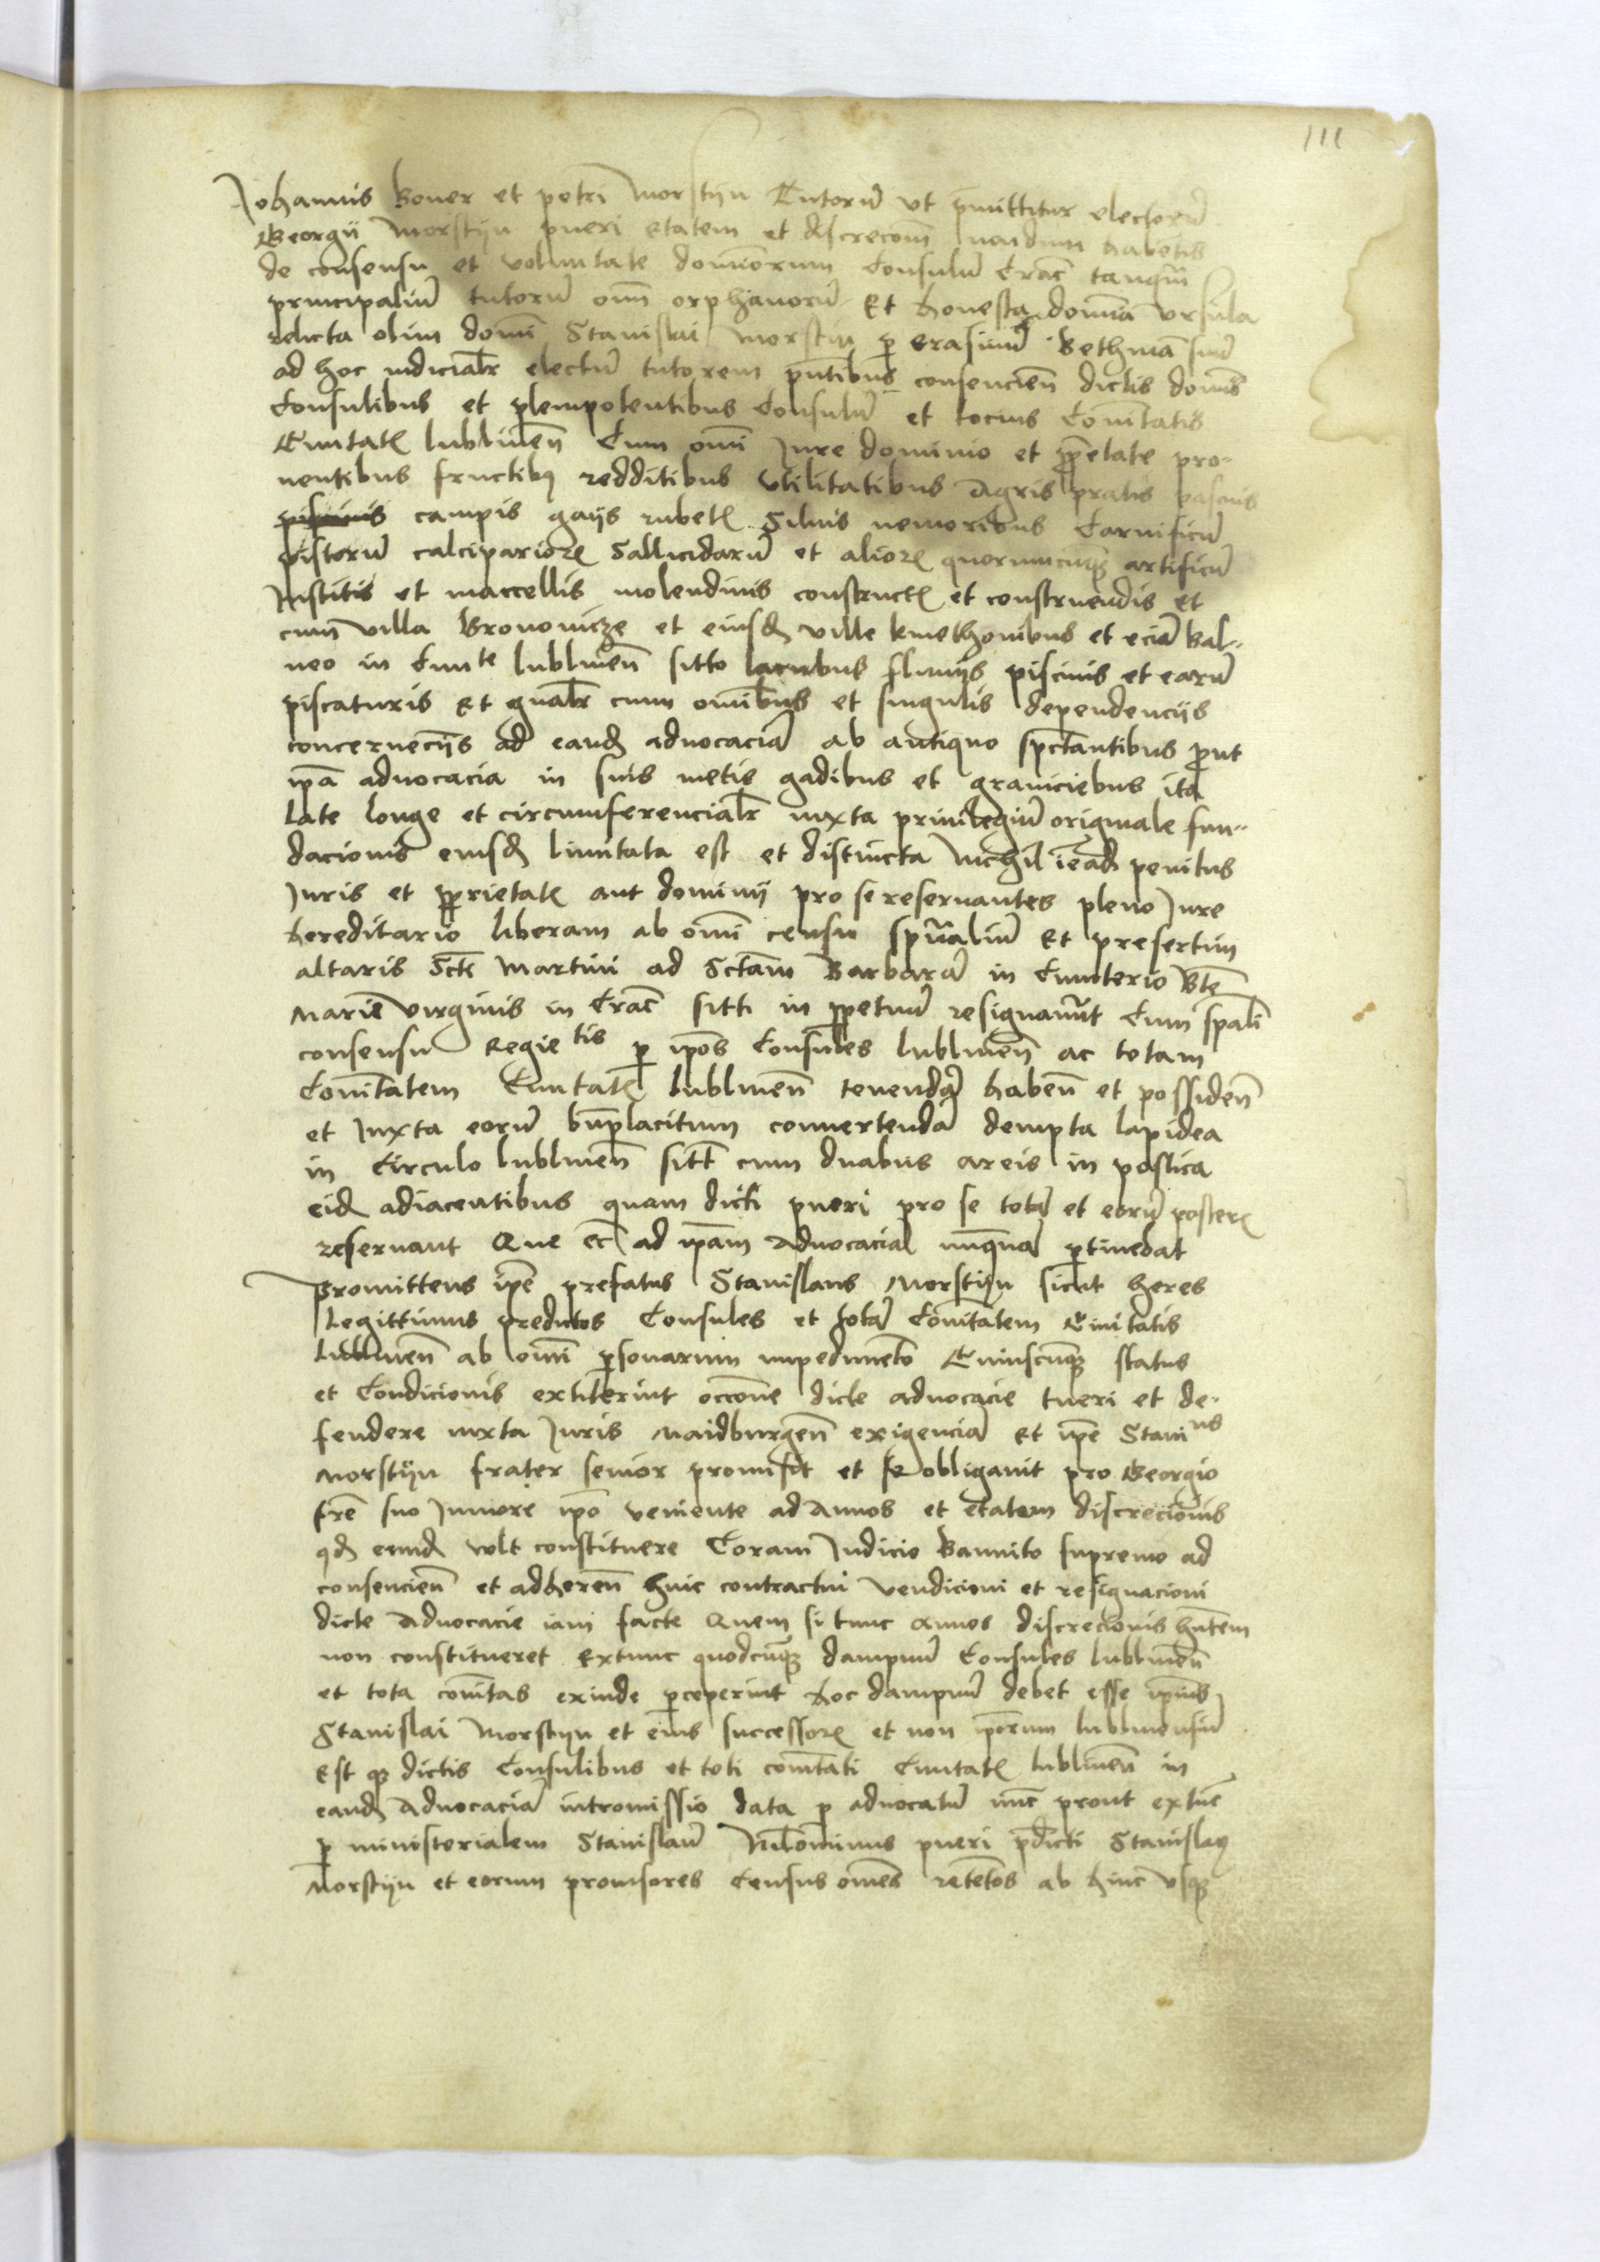 111
Johannis Boner et petri Morstijn Tutorũ vt p̄mittitur electorũ
Georgij Morstijn pueri etatem et discrecōem nondum habētis
de consensu et voluntate dominorum Consulũ Crac̄ tanqm̄
principaliũ tutorũ om̄ orphanorũ Et honesta domīa Vrsula
relicta olim domī Stanislai Morstin p̱ erasimũ Bethmā suũ
ad hoc iudicialr̄ electũ tutorem pn̄tibus consencien̄ dictis domīs
Consulibus et plenipotentibus Consulũ et tocius Cōmitatis
Ciuitatꝭ lublinen̄ Cum om̄i Jure dominio et ꝓp̄etate pro-
uentibus fructibꝫ redditibus vtilitatibus Agris pratis pascuis
campis gaijs rubetꝭ Siluis nemoribus Carnificũ
pistorũ calcipariorꝝ Sallicidarũ et aliorꝝ quorumcũqꝫ artificũ
Institis et maccellis molendinis constructꝭ et construendis et
cum villa Bronouicze et eiusdꝫ ville kmethonibus et eciā bal-
neo in Ciuite lublinen̄ sitto lacubus fluuijs piscinis et earũ
piscaturis Et gn̄alr̄ cum om̄ibus et singulis dependencijs
concernēcijs ad eandꝫ aduocaciā ab antiquo spectantibus ꝓut
ip̄a aduocacia in suis metis gadibus et graniciebus ita
late longe et circumferencialr̄ iuxta priuilegiũ originale fun-
dacionis eiusdꝫ limitata est et distincta Nichil ī eadꝫ penitus
Juris et ꝓprietatꝭ aut dominij pro se reseruantes pleno Jure
hereditario liberam ab om̄i censu spūaliũ Et presertim
altaris Scti Martini ad Sctam Barbarā in Cimiterio Bte
Marie Virginis in Crac̄ sitti in ꝑpetuũ resignauũt Cum spāli
consensu Regie tis p̱ ip̄os Consules lublinen̄ ac totam
Cōmitatem Ciuitatꝭ lublinen̄ tenendā haben̄ et possiden̄
et Juxta eorũ bn̄placitum conuertendā dempta lapidea
in Circulo lublinen̄ sitt̄ cum duabus areis in postica
eidꝫ adiacentibus quam dicti pueri pro se totā et eorũ posterꝭ
reseruant Que ec̄ ad ip̄am aduocaciā nunquā ꝑtinebat
Promittens ip̄e prefatus Stanislaus Morstijn sicut heres
legittimus predictos Consules et totā Cōmitatem Ciuitatis
lublinen̄ ab om̄i ꝑsonarum impedimēto Cuiuscũqꝫ status
et Condicionis extiterint occōne dicte aduocacie tueri et de-
fendere iuxta Juris Maidburgen̄ exigenciā Et ip̄e Stani us
Morstijn frater senior promisit et se obligauit pro Georgio
fr̄e suo Juniore ip̄o veniente ad Annos et etatem discrecionis
qdꝫ eundꝫ vult constituere Coram Judicio Bannito supremo ad
consencien̄ et adheren̄ huic contractui vendicioni et resignacioni
dicte Aduocacie iam facte Quem si tunc Annos discrecionis hn̄tem
non constitueret Extunc quodcũqꝫ dampnũ Consules lublinen̄
et tota cōmitas exinde ꝑceperint hoc dampnũ debet esse ip̄ius
Stanislai Morstijn et eius successorꝝ et non ip̄orum lublinensiũ
Est qꝫ dictis Consulibus et toti comītati Ciuitatꝭ lublinen̄ in
eandꝫ Aduocaciā intromissio data p̱ aduocatũ nũc prout extūc
p̱ ministerialem Stanislaũ Nil̄ominus pueri p̄dicti Stanislaꝯ
Morstijn et eorum prouisores Census om̄es retētos ab hinc vsqꝫ